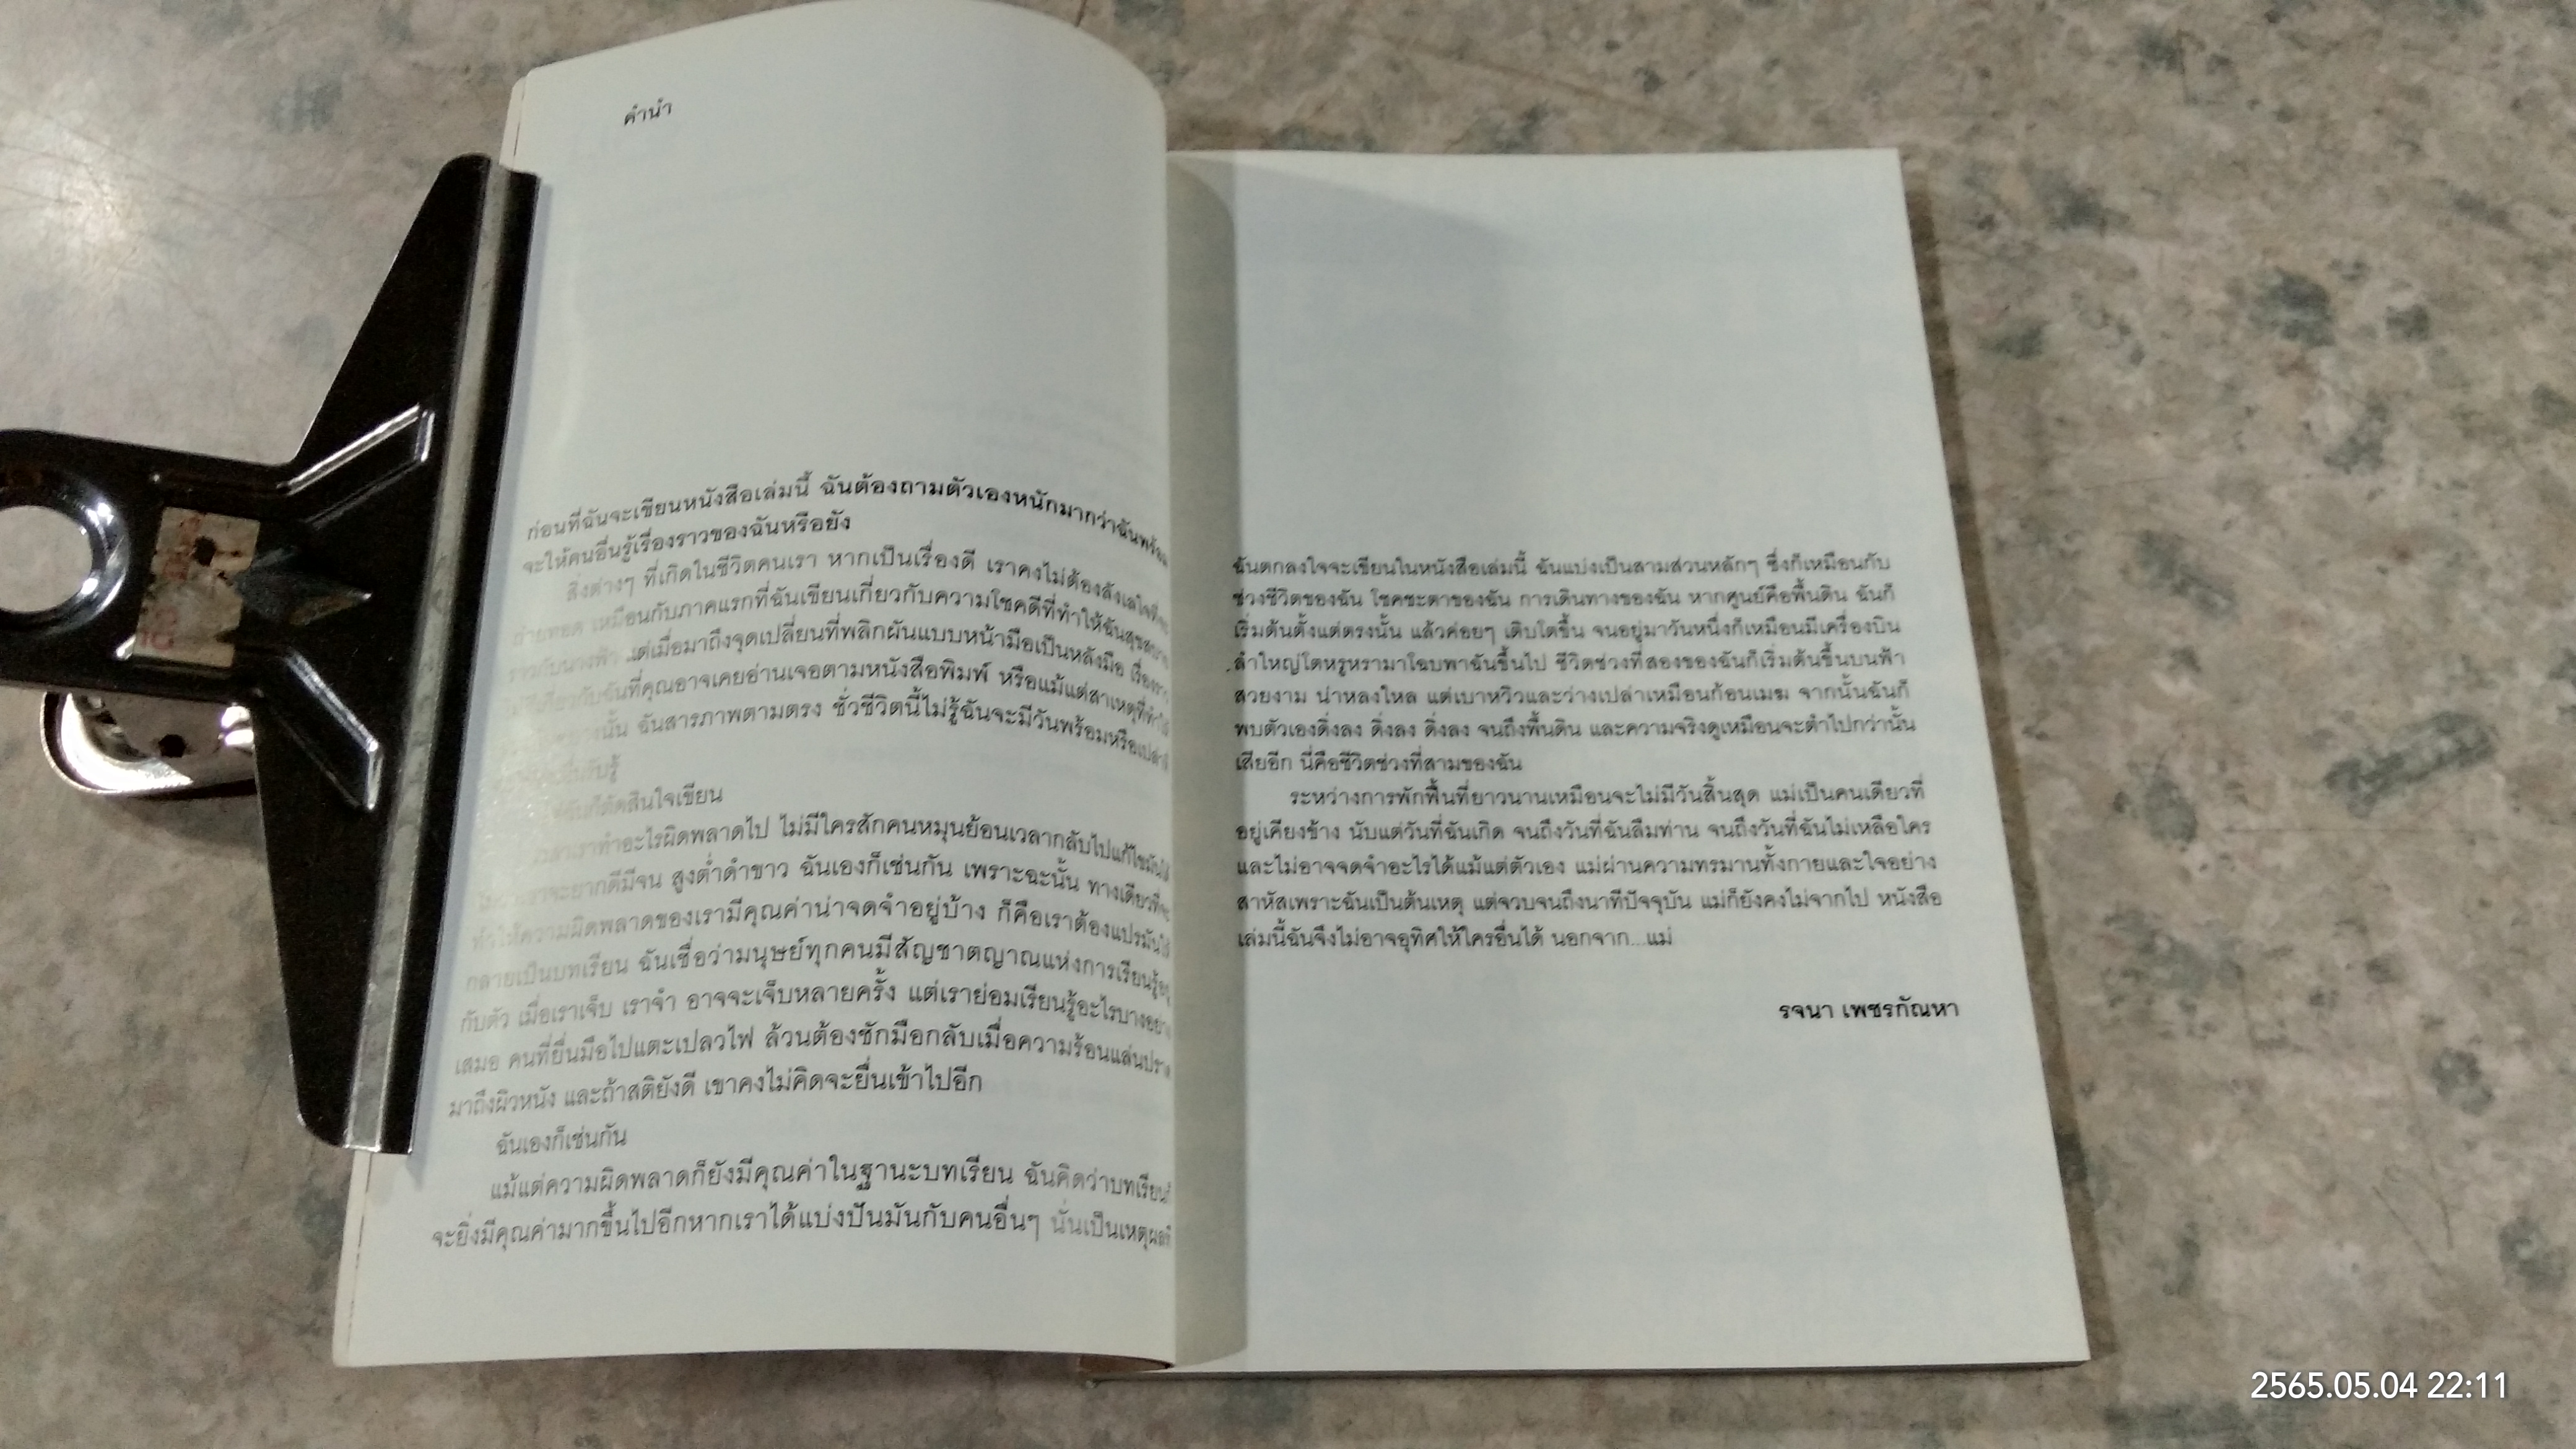 คำนำ
ก่อนที่ฉันจะเขียนหนังสือเล่มนี้ ฉันต้องถามตัวเองหนักมากว่าฉันพร้อม
จะให้คนอื่นรู้เรื่องราวของฉันหรือยัง
สิ่งต่างๆ ที่เกิดในชีวิตคนเรา หากเป็นเรื่องดี เราคงไม่ต้องลังเลใจที่จะ
ถ่ายทอด เหมือนกับภาคแรกที่ฉันเขียนเกี่ยวกับความโชคดีที่ทำให้ฉันสุขสบาย
ราวกับนางฟ้า แต่เมื่อมาถึงจุดเปลี่ยนที่พลิกผันแบบหน้ามือเป็นหลังมือ เรื่องราว
เกี่ยวกับฉันที่คุณอาจเคยอ่านเจอตามหนังสือพิมพ์ หรือแม้แต่สาเหตุที่ทำให้
นั้น ฉันสารภาพตามตรง ชั่วชีวิตนี้ไม่รู้ฉันจะมีวันพร้อมหรือเปล่าที่
รับรู้
ฉันก็ตัดสินใจเขียน
เวลาเราทำอะไรผิดพลาดไป ไม่มีใครสักคนหมุนย้อนเวลากลับไปแก้ไขมันได้
เราจะยากดีมีจน สูงต่ำดำขาว ฉันเองก็เช่นกัน เพราะฉะนั้น ทางเดียวที่จะ
ทำให้ความผิดพลาดของเรามีคุณค่าน่าจดจำอยู่บ้าง ก็คือเราต้องแปรมันให้
กลายเป็นบทเรียน ฉันเชื่อว่ามนุษย์ทุกคนมีสัญชาตญาณแห่งการเรียนรู้อยู่
กับตัว เมื่อเราเจ็บ เราจำ อาจจะเจ็บหลายครั้ง แต่เราย่อมเรียนรู้อะไรบางอย่าง
เสมอ คนที่ยื่นมือไปแตะเปลวไฟ ล้วนต้องชักมือกลับเมื่อความร้อนแล่นปราด
มาถึงผิวหนัง และถ้าสติยังดี เขาคงไม่คิดจะยื่นเข้าไปอีก
ฉันเองก็เช่นกัน
แม้แต่ความผิดพลาดก็ยังมีคุณค่าในฐานะบทเรียน ฉันคิดว่าบทเรียนนี้
จะยิ่งมีคุณค่ามากขึ้นไปอีกหากเราได้แบ่งปันมันกับคนอื่นๆ นั่นเป็นเหตุผลที่
ฉันตกลงใจจะเขียนในหนังสือเล่มนี้ ฉันแบ่งเป็นสามส่วนหลักๆ ซึ่งก็เหมือนกับ
ช่วงชีวิตของฉัน โชคชะตาของฉัน การเดินทางของฉัน หากศูนย์คือพื้นดิน ฉันก็
เริ่มต้นตั้งแต่ตรงนั้น แล้วค่อยๆ เติบโตขึ้น จนอยู่มาวันหนึ่งก็เหมือนมีเครื่องบิน
ลำใหญ่โตหรูหรามาโฉบพาฉันขึ้นไป ชีวิตช่วงที่สองของฉันก็เริ่มต้นขึ้นบนฟ้า
สวยงาม น่าหลงใหล แต่เบาหวิวและว่างเปล่าเหมือนก้อนเมฆ จากนั้นฉันก็
พบตัวเองดิ่งลง ดิ่งลง ดิ่งลง จนถึงพื้นดิน และความจริงดูเหมือนจะต่ำไปกว่านั้น
เสียอีก นี่คือชีวิตช่วงที่สามของฉัน
ระหว่างการพักฟื้นที่ยาวนานเหมือนจะไม่มีวันสิ้นสุด แม่เป็นคนเดียวที่
อยู่เคียงข้าง นับแต่วันที่ฉันเกิด จนถึงวันที่ฉันลืมท่าน จนถึงวันที่ฉันไม่เหลือใคร
และไม่อาจจดจำอะไรได้แม้แต่ตัวเอง แม่ผ่านความทรมานทั้งกายและใจอย่าง
สาหัสเพราะฉันเป็นต้นเหตุ แต่จวบจนถึงนาทีปัจจุบัน แม่ก็ยังคงไม่จากไป หนังสือ
เล่มนี้ฉันจึงไม่อาจอุทิศให้ใครอื่นได้ นอกจาก...แม่
รจนา เพชรกัณหา
2565.05.04 22:11